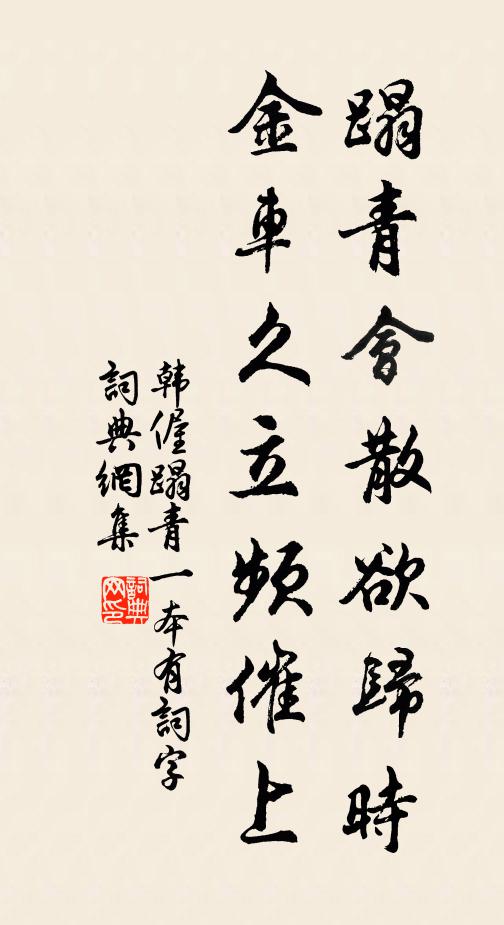 蹋青會散欲歸時
金車久立頻催上
韩偓蹋青一本有詞字
詞典網集
詞典網印